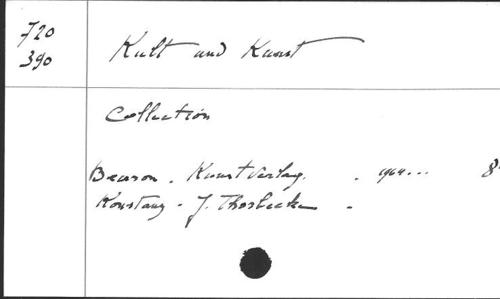 720
390
Kult und Kunst
Collection
Beuron. Kunstverlag. . 19..... 8°
Konstanz - J. Thorbecke .